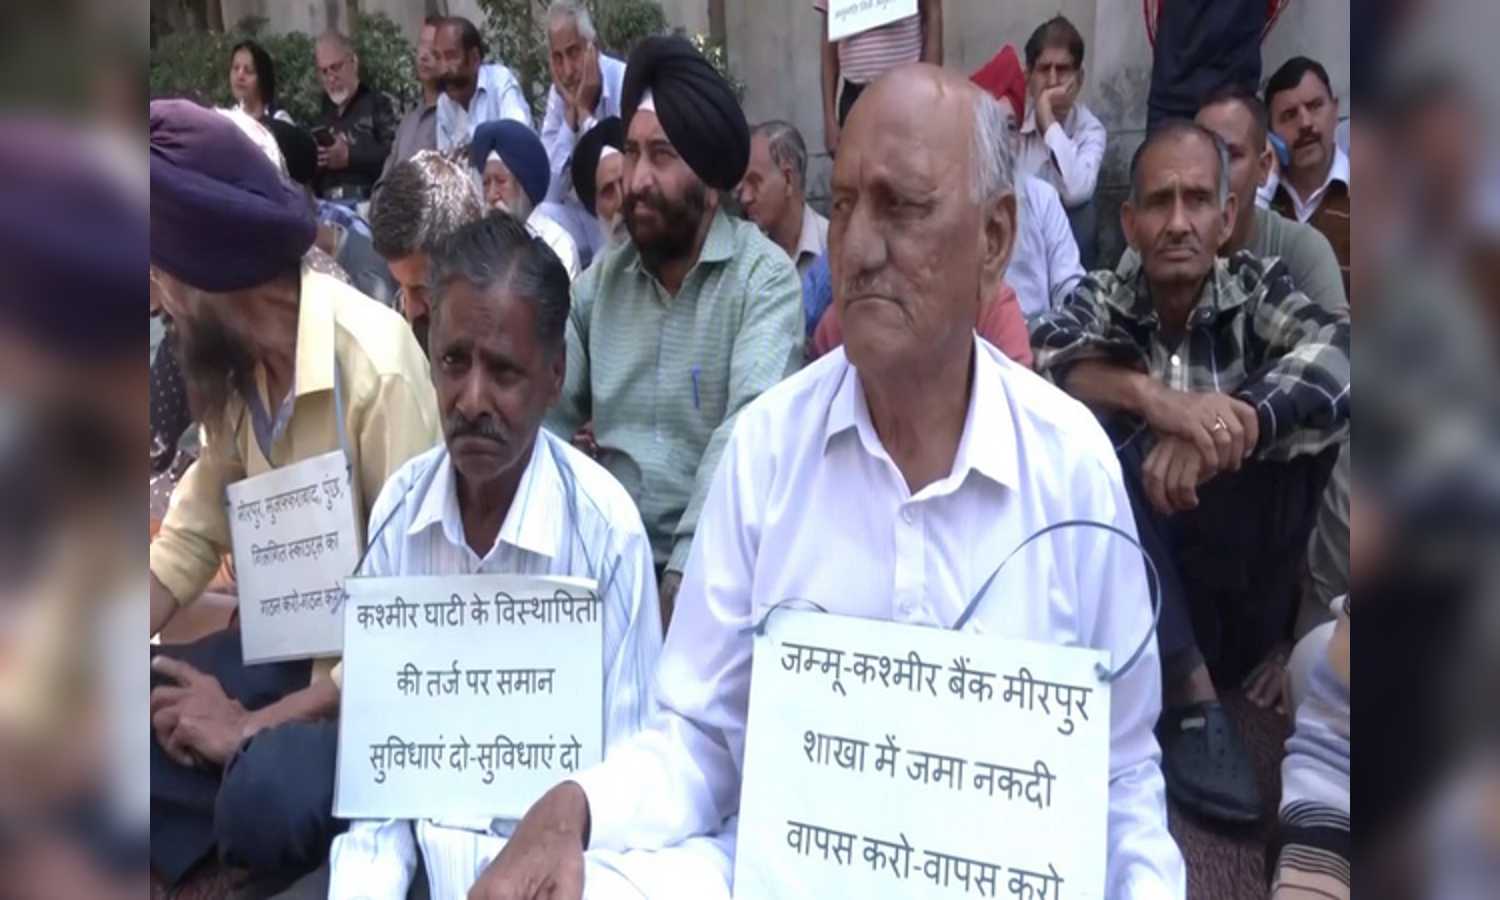 मीरपुर, मुजफ्फराबाद, पुंछ,
विस्थापित स्काउट्स का
गठन करो-गठन करो
कश्मीर घाटी के विस्थापितों
की तर्ज पर समान
सुविधाएं दो-सुविधाएं दो
जम्मू-कश्मीर बैंक मीरपुर
शाखा में जमा नकदी
वापस करो-वापस करो